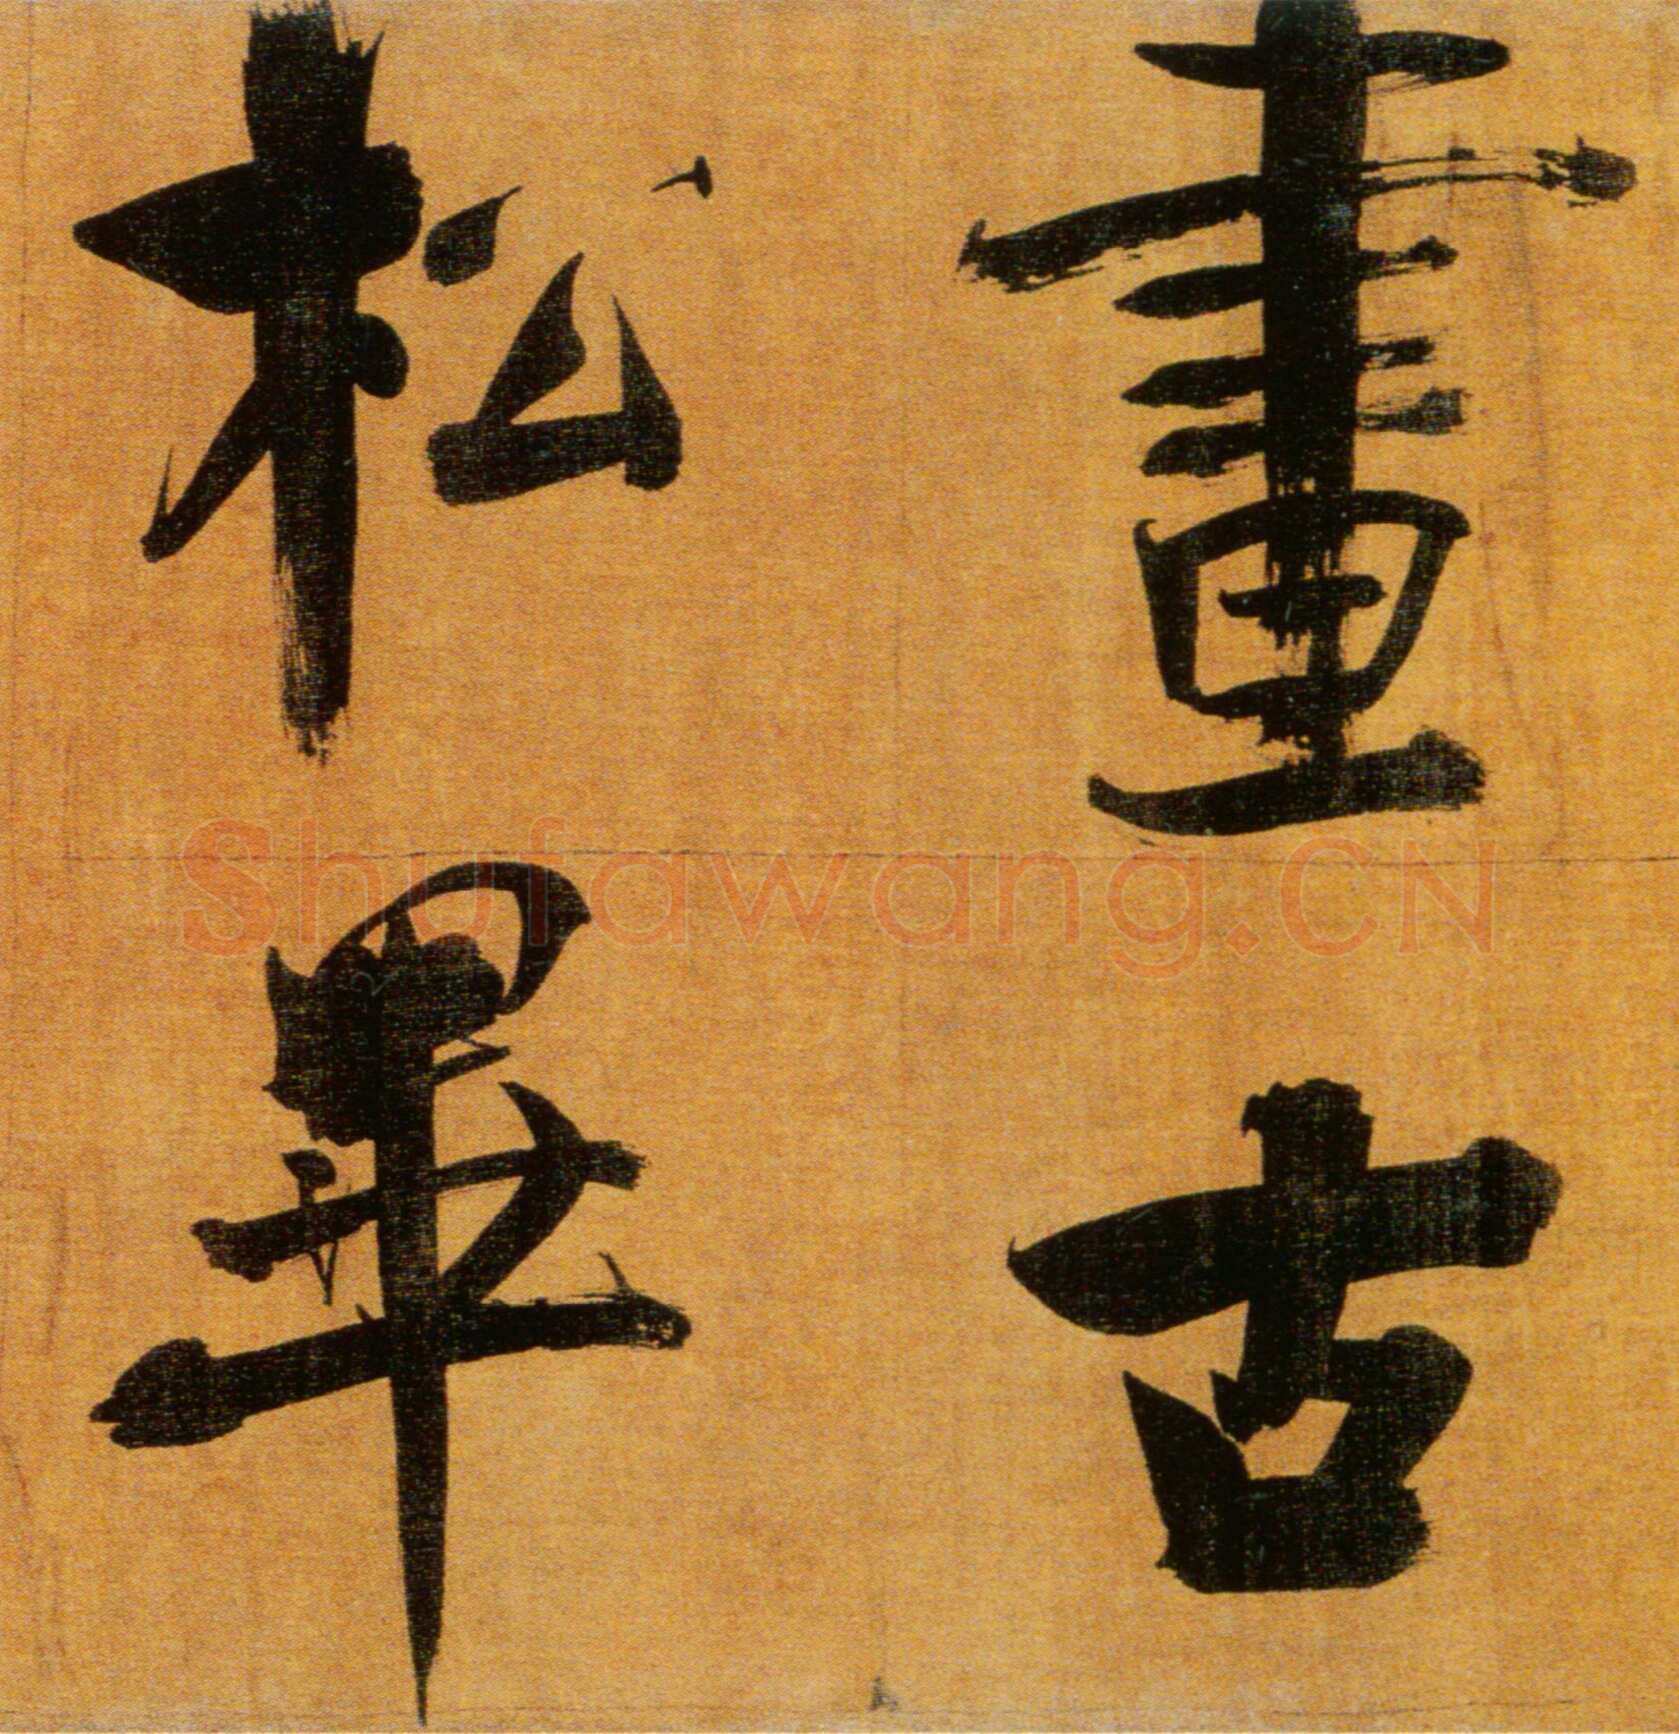 畫古
松畢
Shufawang.CN